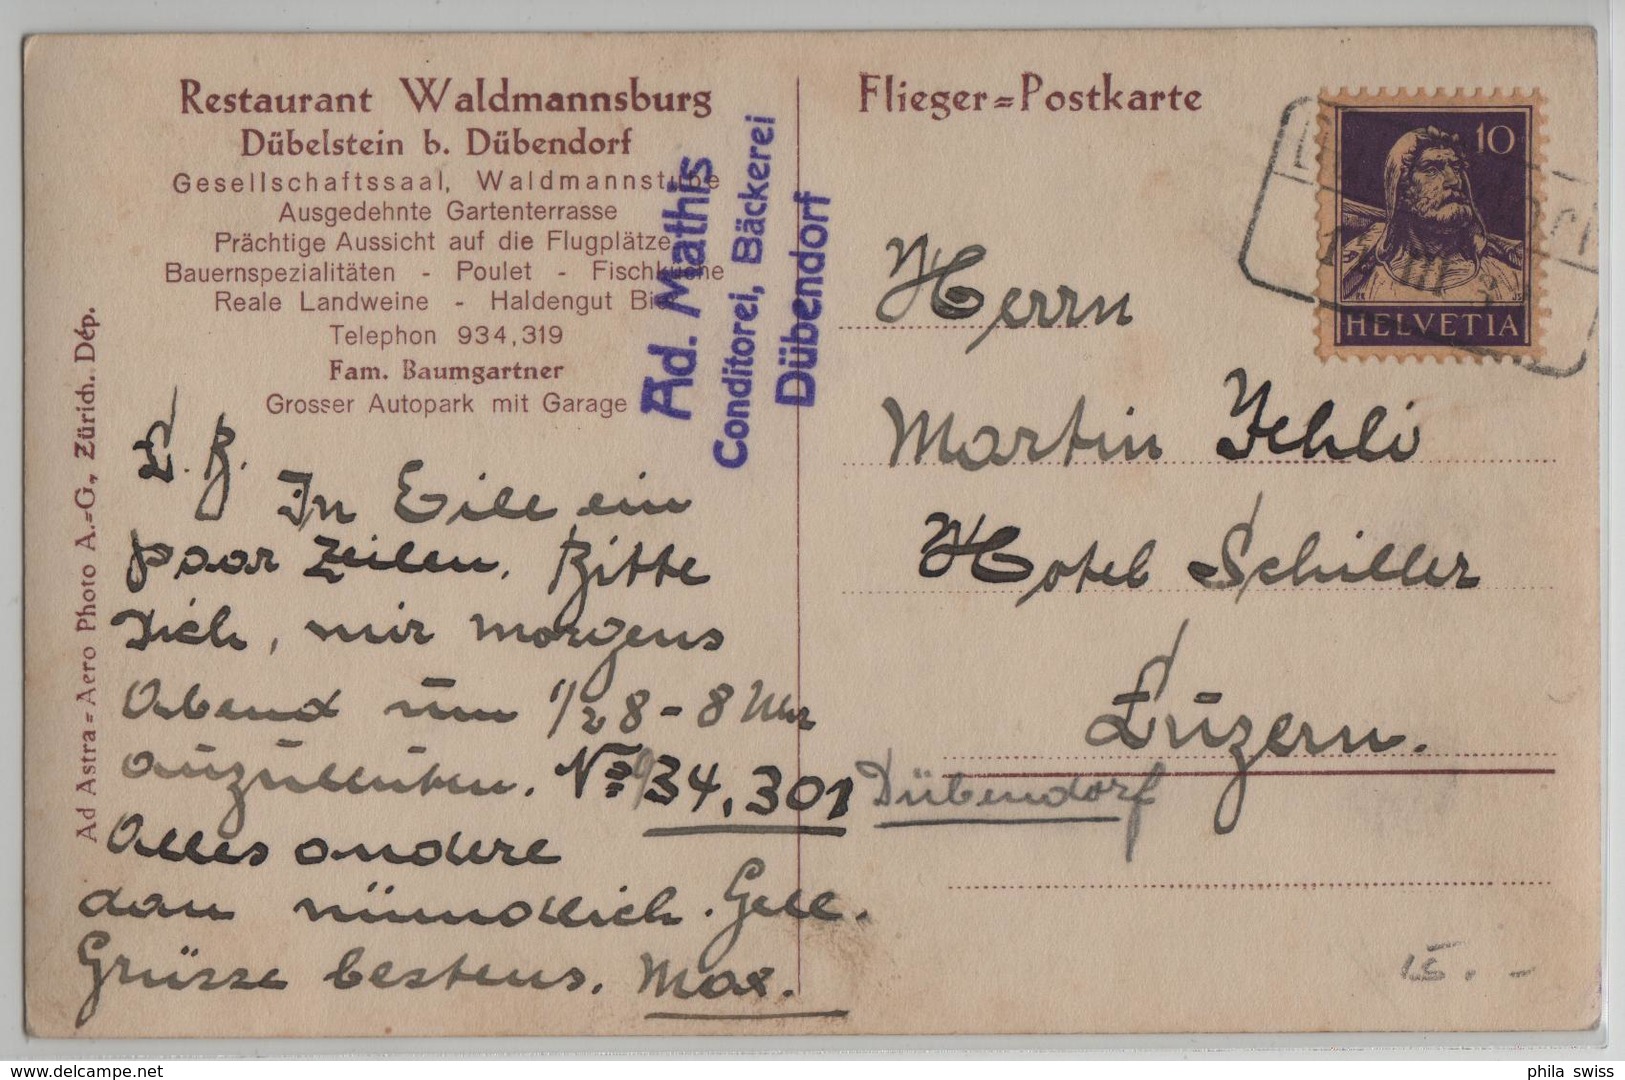 Restaurant Waldmannsburg
Dübelstein b. Dübendorf
Gesellschaftssaal, Waldmannstube
Ausgedehnte Gartenterrasse
Prächtige Aussicht auf die Flugplätze
Bauernspezialitäten - Poulet - Fischküche
Reale Landweine - Haldengut Bier
Telephon 934,319
Fam. Baumgartner
Grosser Autopark mit Garage
Ad. Mathis
Conditorei, Bäckerei
Dübendorf
Ad Astra=Aero Photo A.=G., Zürich. Dép.
L. B.
In Eile ein
paar Zeilen. Bitte
Dich, mir morgens
Abend um 1/2 8 - 8 Uhr
anzuleuten. No 934,301 Dübendorf
Alles andere
dan mündlich. Gell.
Grüsse bestens. Max.
Flieger=Postkarte
10
HELVETIA
Herrn
Martin Jehli
Hotel Schiller
Luzern.
15.-
phila swiss
delcampe.net